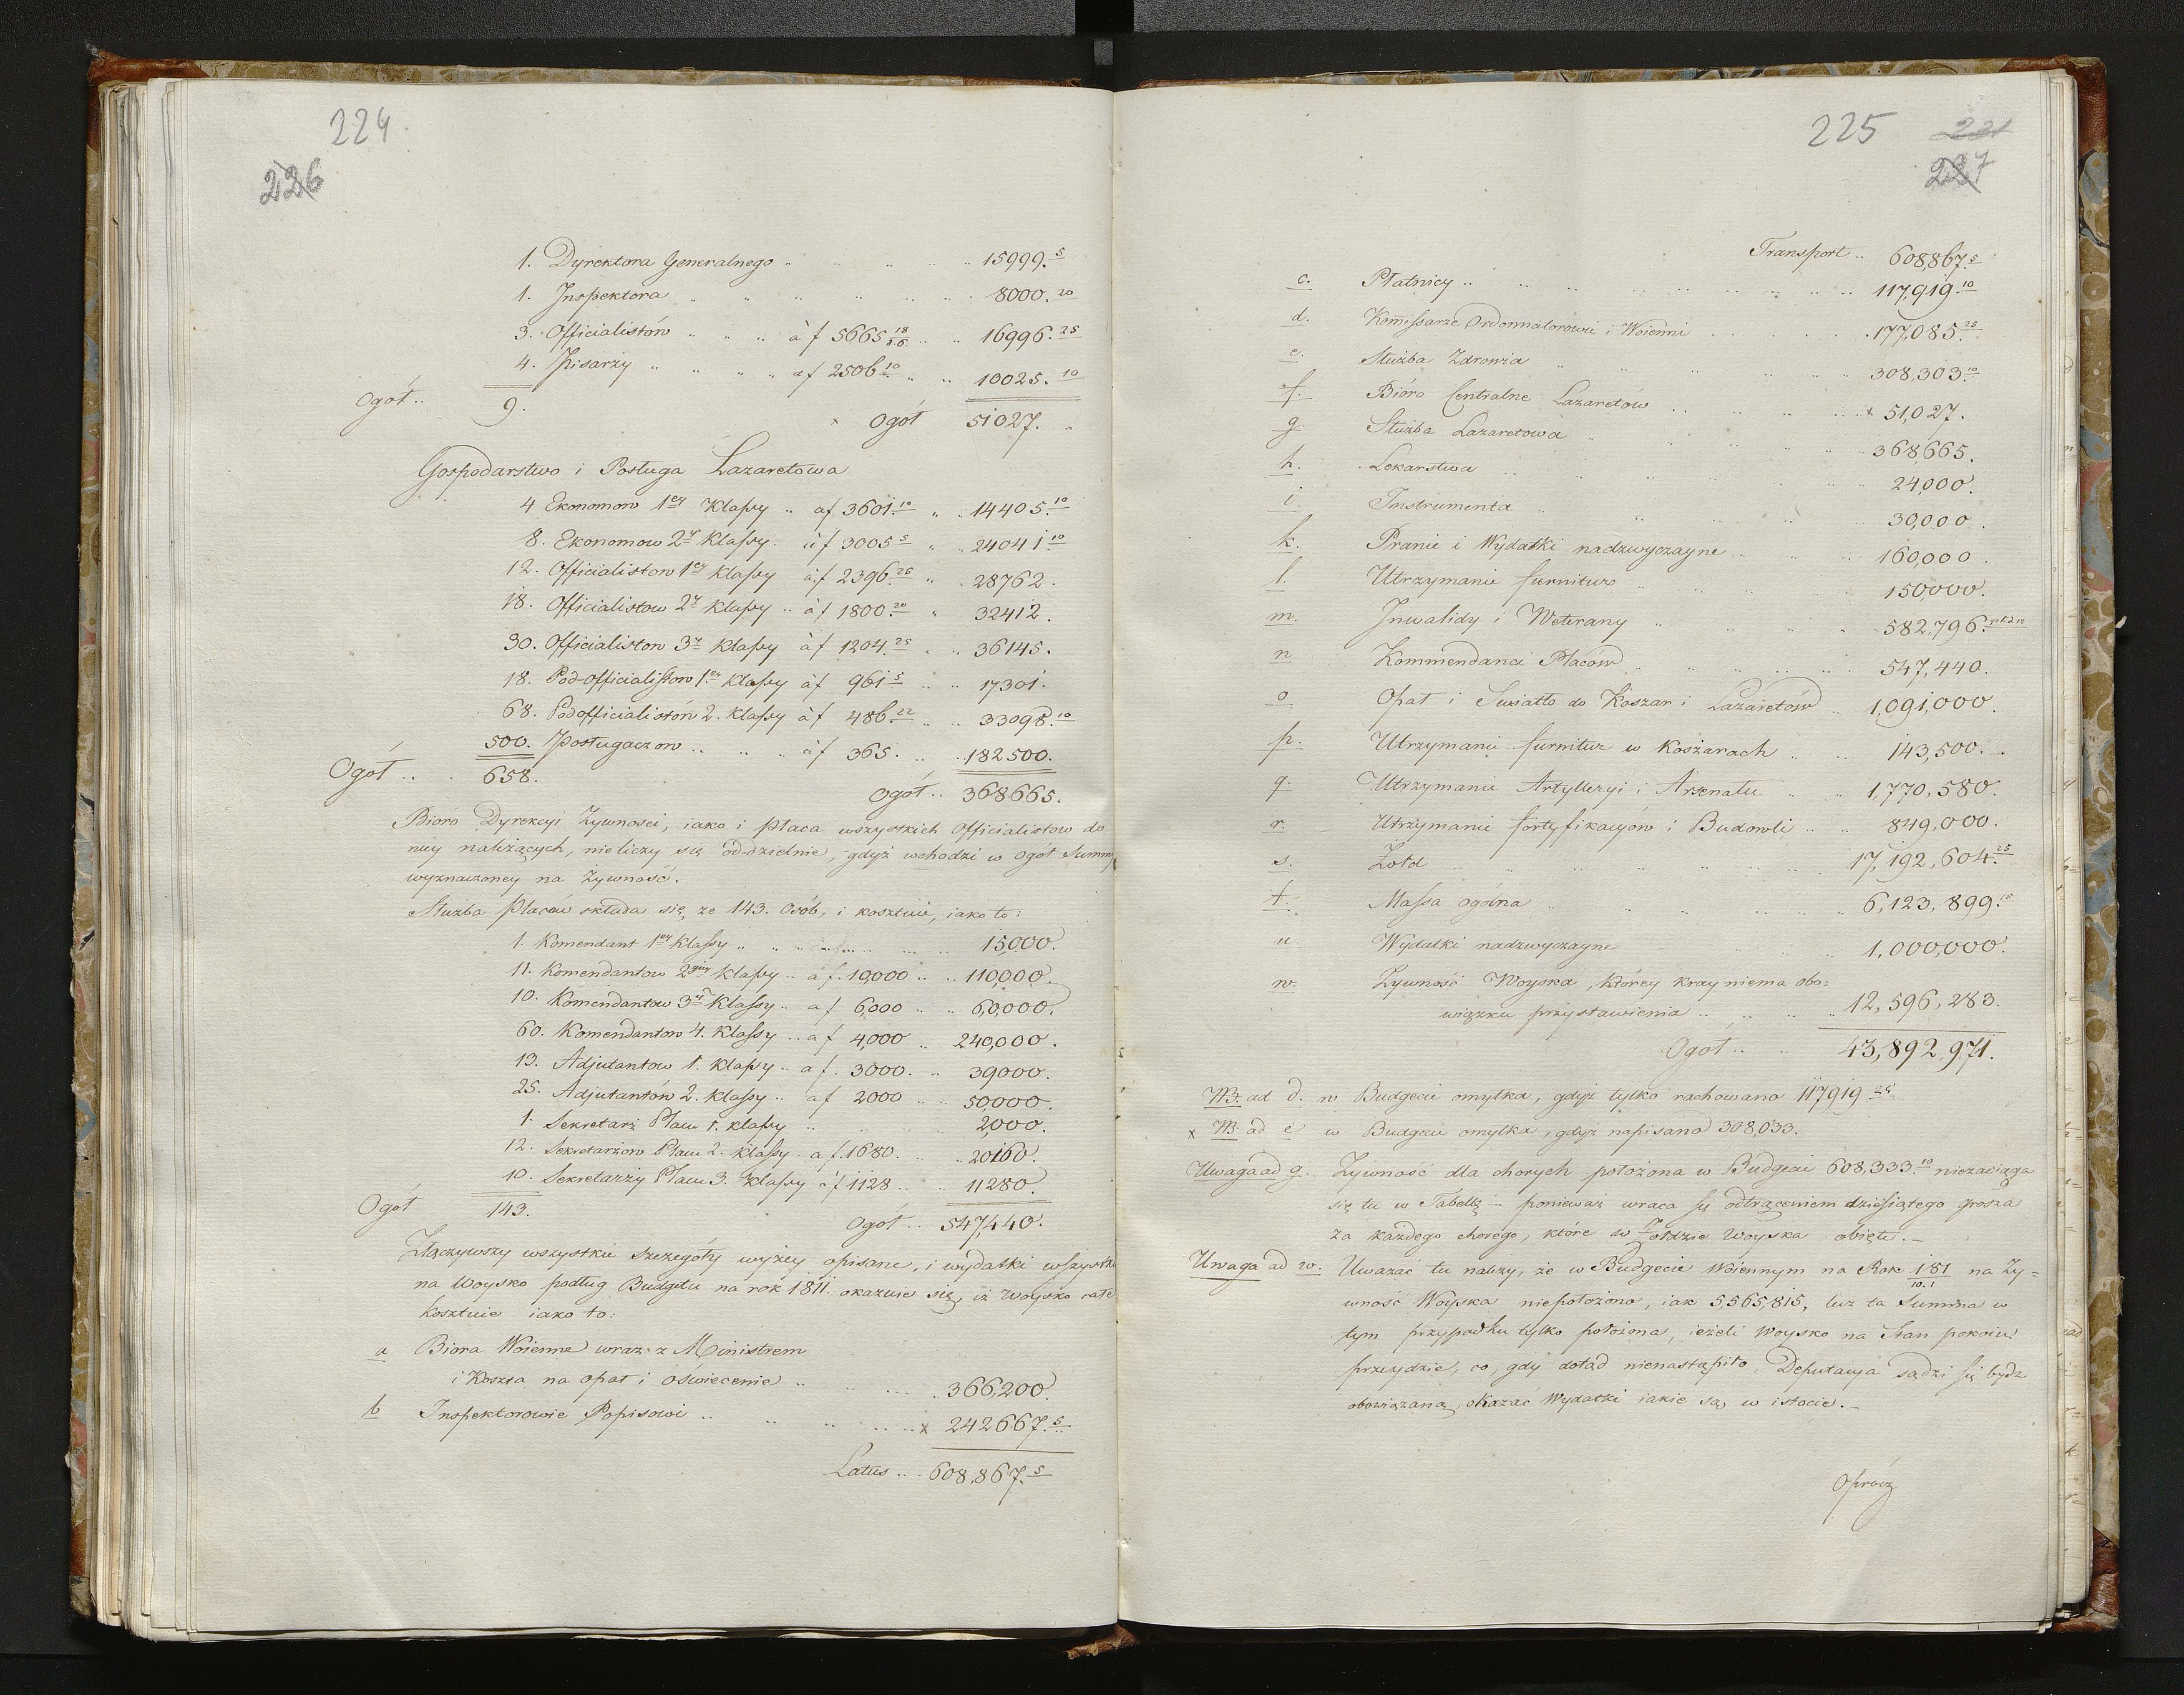 224
226
1. Dyrektora Generalnego .. .. .. .. 15999.5
1. Inspektora .. .. .. .. .. 8000.20
3. Officialistów .. .. .. à f 5665 18 .. .. 16996.25
4. Pisarży .. .. .. .. af 2506 10 .. .. 10025.10
Ogół .. 9. Ogół 51027. ..
Gospodarstwo i Posługa Lazaretowa
4 Ekonomow 1ey Klassy .. af 3601.10 .. .. 14405.10
8. Ekonomow 2y Klassy. àf 3005 5 .. .. 24041 10
12. Officialistow 1ey Klassy àf 2396.25 .. .. 28762.
18. Officialistow 2y Klassy .. àf 1800.20 .. 32412.
30. Officialistow 3y Klassy àf 1204.25 .. .. 36145.
18. Pod-officialistow 1ey Klassy àf 961 5 .. .. 17301.
68. Podofficialistów 2. Klassy àf 486.22 .. .. 33098.10
500. Posługaczow .. .. .. àf 365. .. .. 182500.
Ogół .. . 658. Ogół .. 368665.
Bióro Dyrekcyi Zywnosci, iako i płaca wszystkich Officialistow do
niey należących, nieliczy się od-dzielnie, gdyż wchodzi w ogół Summy
wyznaczoney na żywność.
Służba placów składa się ze 143. Osób, i kosztuie, iako to:
1. Komendant 1ey Klassy .. .. .. .. .. 15,000.
11. Komendantow 2giey Klassy .. à f. 10,000 .. .. 110,000.
10. Komendantow 3y Klassy .. af 6,000 .. .. 60,000.
60. Komendantow 4. Klassy .. af 4,000 .. 240,000.
13. Adjutantow 1. Klassy .. a f. 3000. .. 39000.
25. Adjutantów 2. Klassy .. af 2000 .. .. 50,000.
1. Sekretarz Placu 1. klassy .. .. .. 2,000.
12. Sekretarzow Placu 2. Klassy . a f. 1680. .. .. 20160.
10. Sekretarzy Placu 3. Klassy àf 1128 .. .. 11280.
Ogół 143. Ogół .. 547,440.
Złączywszy wszystkie szczegóły wyżey opisane, i wydatki wszystkie
na Woysko podług Budgetu na rok 1811. okazuie się, iż Woysko całe
kosztuie iako to:
a Biora Woienne wraz z Ministrem
i Koszta na opał i oświecenie .. .. .... .. 366,200.
b Inspektorowie Popisowi .. .. .. .. .. x 242667.5
Latus .. . 608,867.5
225 221
227
Transport .. 608,867.5
c. Płatnicy .. .. .. .. .. .. .. 117,919.10
d. Kommissarze Ordonnatorowie i Woienni .. .. 177,085.25
e. Służba Zdrowia .. .. .. .. .. 308,303.10
f. Bióro Centralne Lazaretów .. .. .. .. x 51,027.
g. Służba Lazaretowa .. .. .. .. .. 368,665.
h. Lekarstwa .. .. .. .. .. 24,000.
i. Instrumenta .. .. .. .. 30,000.
k. Pranie i Wydatki nadzwyczayne .. .. .. 160,000.
l. Utrzymanie furnitur .. .. .. .. 150,000.
m. Inwalidy i Weterany .. .. .. .. 582,796.
n Kommendanci Placów .. .. .. .. 547,440.
o Opał i Swiatło do Koszar i Lazaretów .. 1,091,000.
p. Utrzymanie furnitur w Koszarach .. .. 143,500.
q. Utrzymanie Artylleryi i Arsenału .. .. 1,770,580.
r. Utrzymanie fortyfikacyów i Budowli .. .. 849,000.
s. Zołd .. .. .. .. .. .. 17,192,604.25
t. Massa ogólna .. .. .. .. .. 6,123,899.15
u. Wydatki nadzwyczayne .. .. .. 1,000,000.
w. Zywność Woyska, którey kray niema obo=
wiązku przystawienia .. .. .. .. 12,596,283.
Ogół .. .. 43,892,971.
NB. ad d. w Budgecie omyłka, gdyż tylko rachowano 117919.25
x NB ad e w Budgecie omyłka, gdyż napisano 308,033.
Uwaga ad g. Zywność dla chorych położona w Budgecie 608,333.10 niezaciąga
się tu w Tabellę – ponieważ wraca się odtrąceniem dziesiątego grosza
za każdego chorego, które w Zołdzie Woyska obięte.–
Uwaga ad w. Uważać tu należy, że w Budgecie Woiennym na Rok 181 10.1 na Zy=
wność Woyska niepołożono, iak 5,565,815, lecz ta Summa w
tym przypadku tylko położona, ieżeli Woysko na Stan pokoiu
przeydzie, co, gdy dotąd nienastąpiło, Deputacya sądzi się bydz
obowiązaną, okazać Wydatki iakie są w istocie.–
Oprócz